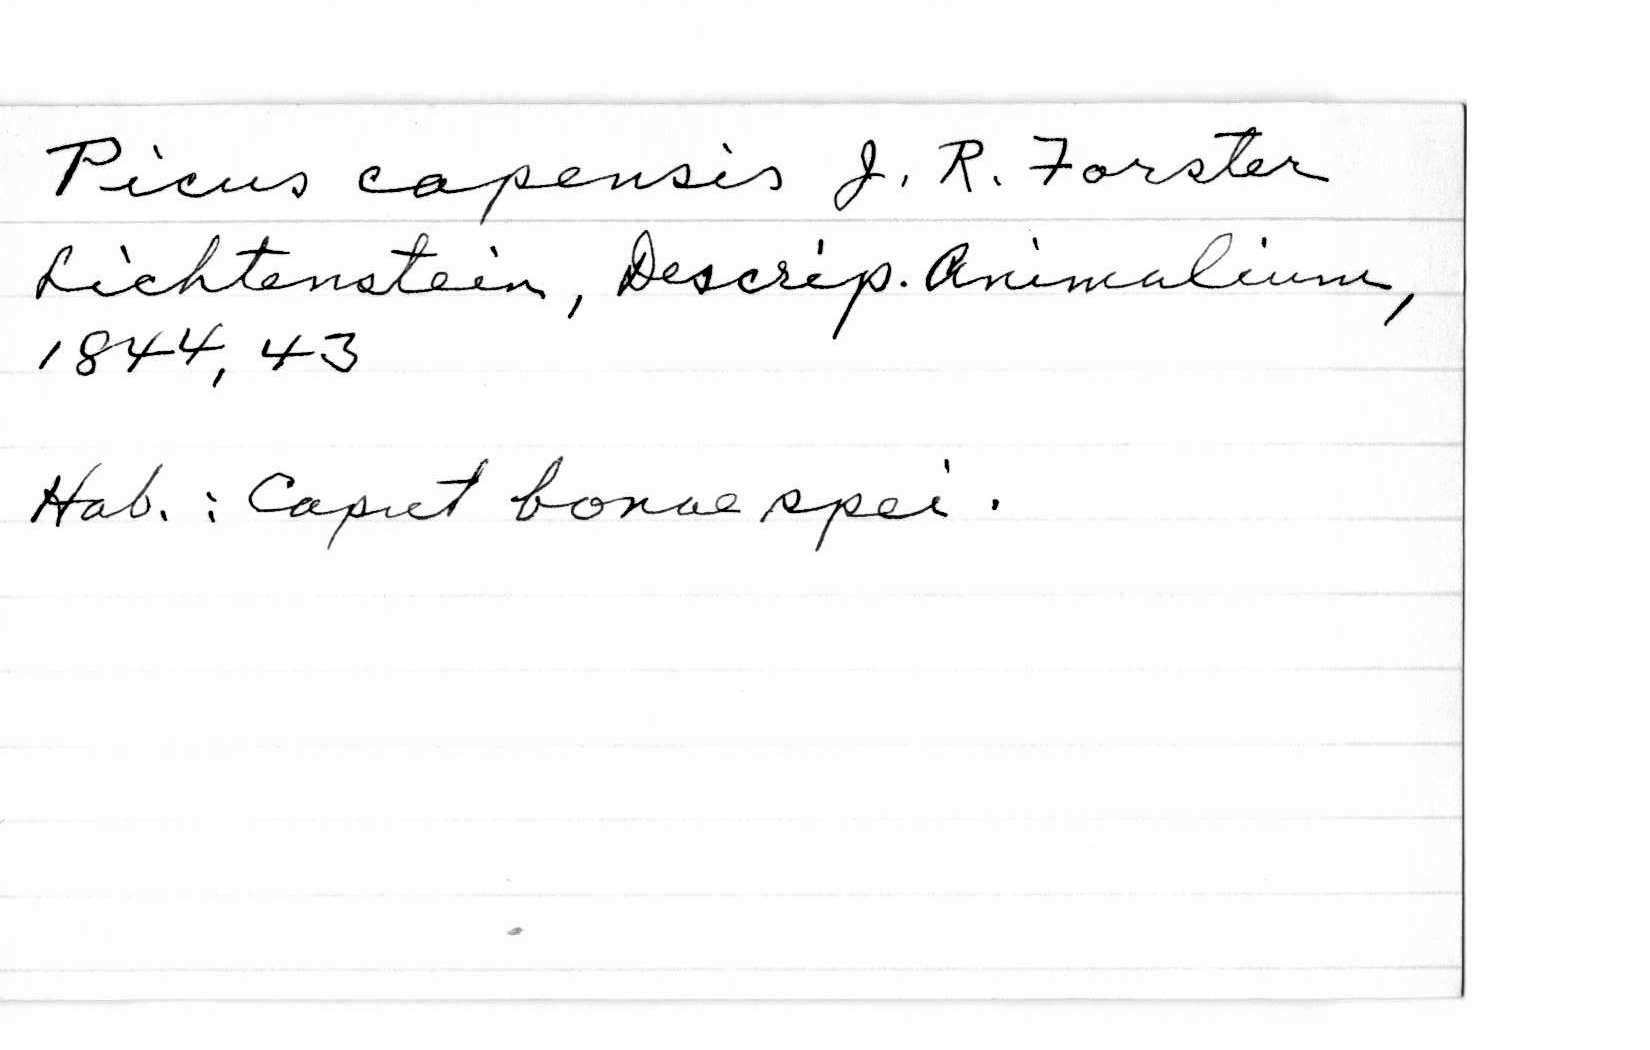 Picus capensis J. R. Forster
Lichtenstein, Descrip. Animalium,
1844, 43
Hab. : Caput bonae spei.